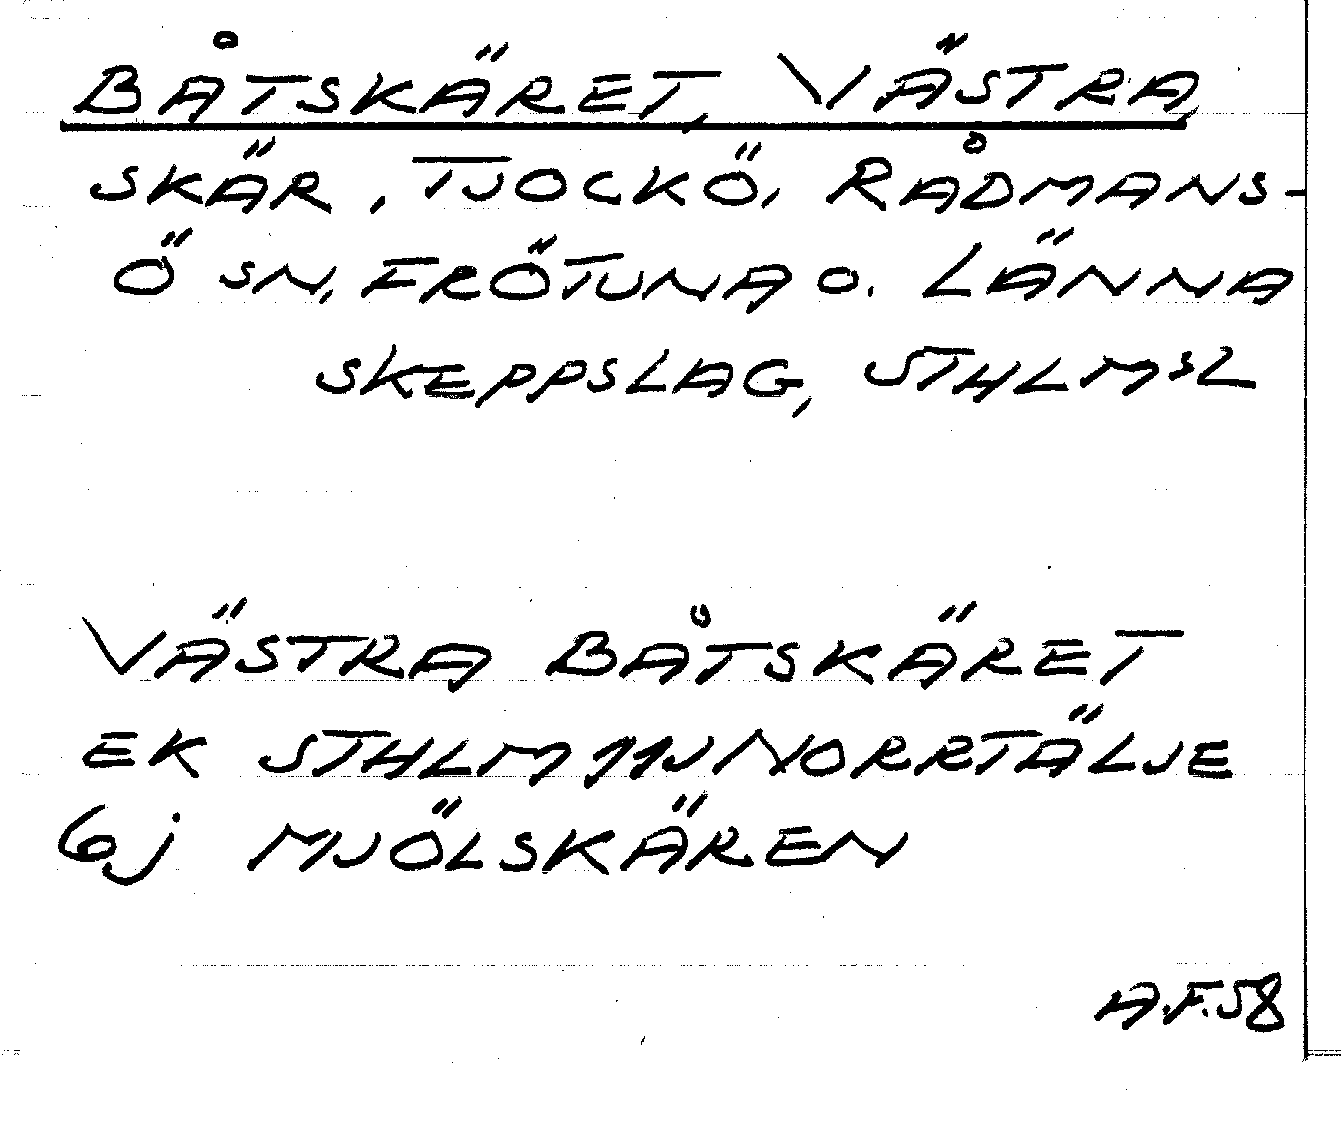 BÅTSKÄRET, VÄSTRA,
SKÄR, TJOCKÖ, RÅDMANS-
Ö SN, FRÖTUNA O. LÄNNA
SKEPPSLAG, STHLMSL
VÄSTRA BÅTSKÄRET
EK STHLM 11J NORRTÄLJE
6j MJÖLSKÄREN
A.F.58